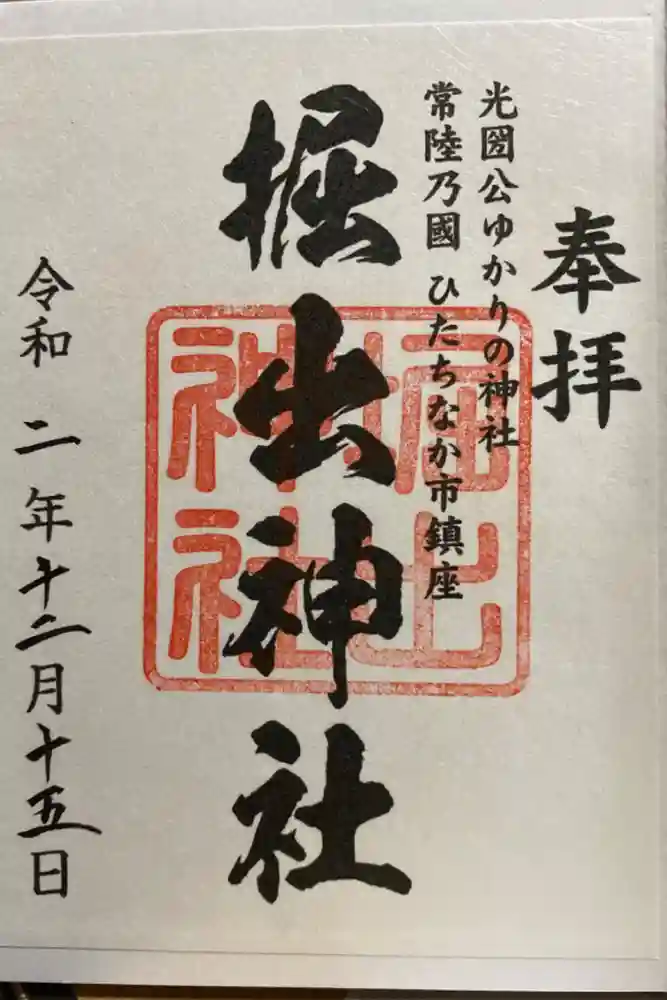 奉拝
光圀公ゆかりの神社
常陸乃國 ひたちなか市鎮座
堀出神社
堀出神社
令和 二年十二月十五日